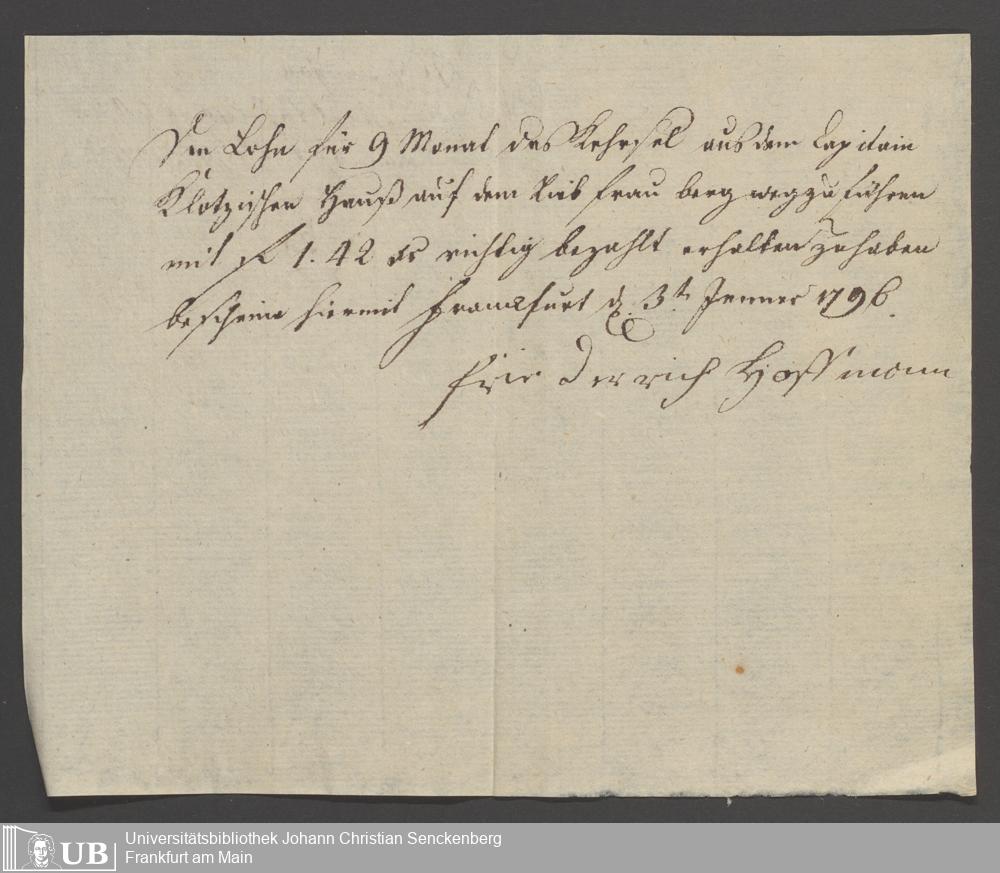 Den Lohn für 9 Monat das Kehrsel aus dem Capitain
Klotzischen Hauß auf dem Lieb frau berg wegzuführen
mit f 1. 42 xr richtig bezahlt erhalten zu haben
bescheine hiermit Franckfurt d. 3t. Jenner 1796.
Frie derrich Hoffmann
UB
Universitätsbibliothek Johann Christian Senckenberg
Frankfurt am Main